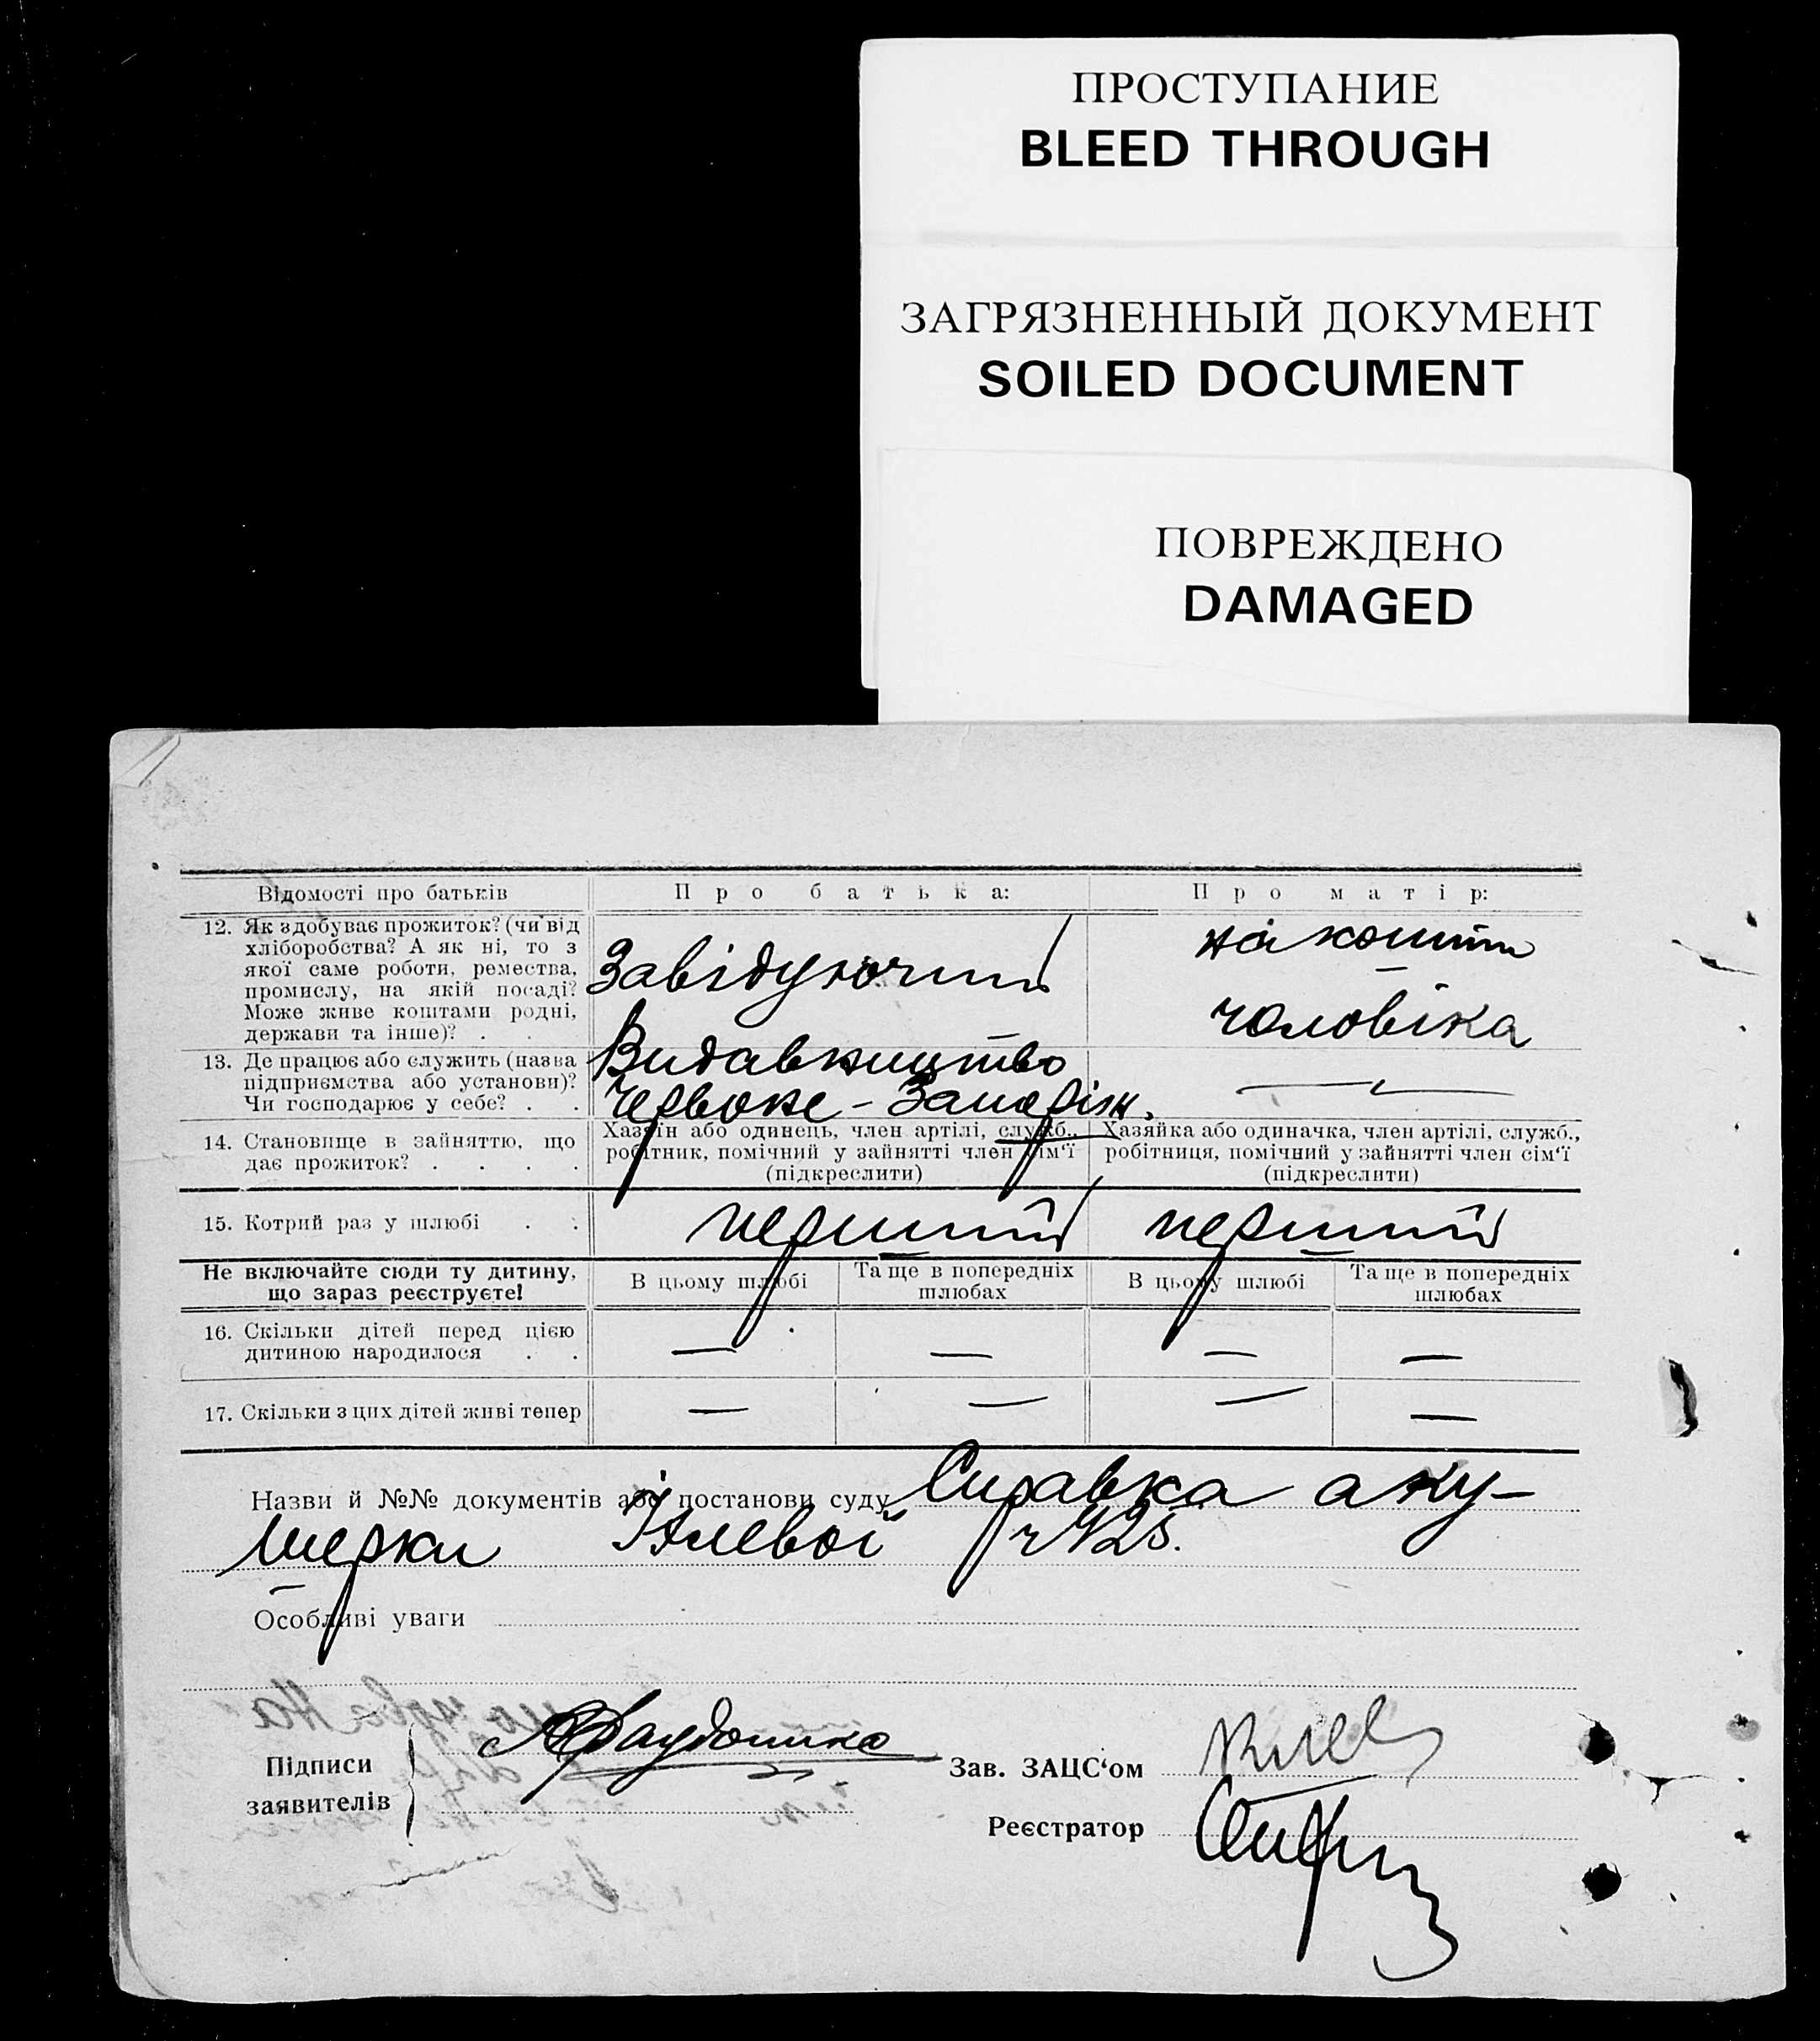 ПРОСТУПАНИЕ
BLEED THROUGH
ЗАГРЯЗНЕННЫЙ ДОКУМЕНТ
SOILED DOCUMENT
ПОВРЕЖДЕНО
DAMAGED
Відомості про батьків
Про батька:
Про матір:
12. Як здобуває прожиток? (чи від
хліборобства? А як ні, то з
якої саме роботи, ремества,
промислу, на якій посаді?
Може живе коштами родні,
держави та інше)? .
Завідуючий
на кошти
чоловіка
13. Де працює або служить (назва
підприємства або установи)?
Чи господарює у себе? . .
Видавництво
Червоне-Запоріж.
—
14. Становище в зайняттю, що
дає прожиток? . . . .
Хазяїн або одинець, член артілі, служб.,
робітник, помічний у зайнятті член сім‘ї
(підкреслити)
Хазяйка або одиначка, член артілі, служб.,
робітниця, помічний у зайнятті член сім‘ї
(підкреслити)
15. Котрий раз у шлюбі . .
перший
перший
Не включайте сюди ту дитину,
що зараз реєструєте!
В цьому шлюбі
Та ще в попередніх
шлюбах
В цьому шлюбі
Та ще в попередніх
шлюбах
16. Скільки дітей перед цією
дитиною народилося . .
— — — —
17. Скільки з цих дітей живі тепер
— — — —
Назви й №№ документів або постанови суду Справка аку-
шерки
Особливі уваги
Підписи
заявителів
Зав. ЗАЦС‘ом
Реєстратор